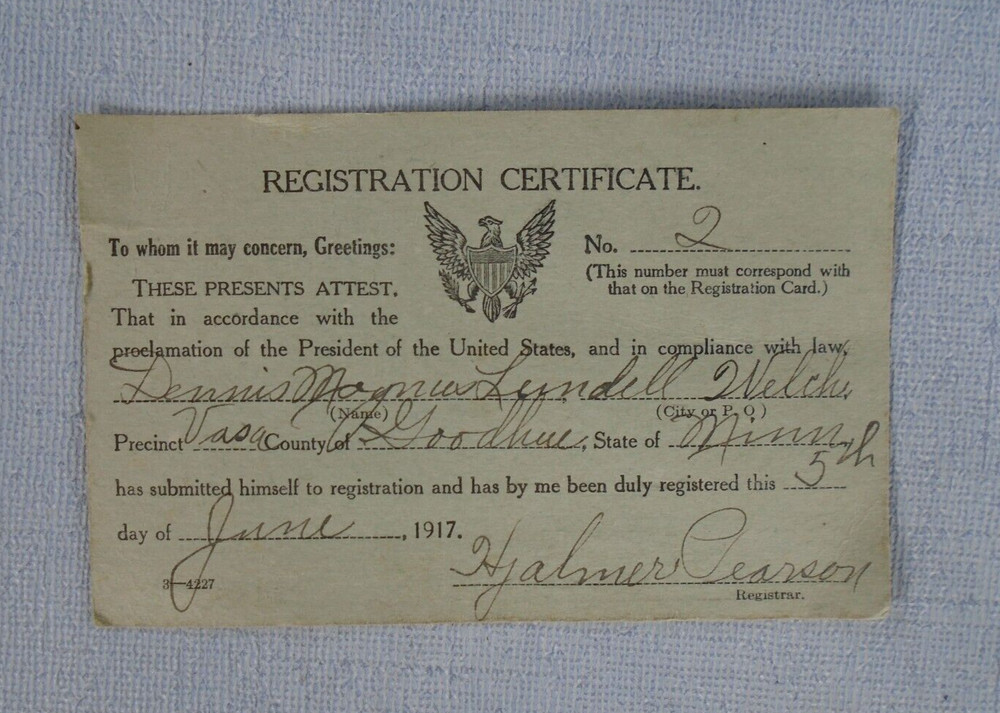 REGISTRATION CERTIFICATE.
To whom it may concern, Greetings:
No. 2
(This number must correspond with
that on the Registration Card.)
THESE PRESENTS ATTEST,
That in accordance with the
proclamation of the President of the United States, and in compliance with law,
Dennis Magnus Lundell Welch,
(Name) (City or P. O.)
Precinct Vasa County of Goodhue, State of Minn
has submitted himself to registration and has by me been duly registered this 5th
day of June, 1917.
Hjalmer Pearson
3—4227
Registrar.